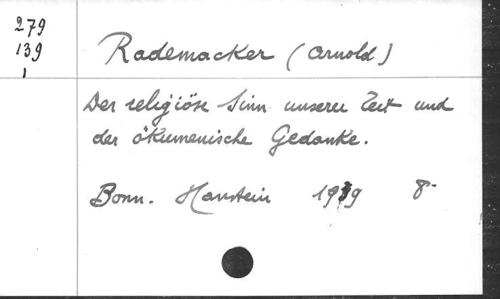 279
139
1
Rademacker (Arnold)
Der religiöse Sinn unserer Zeit und
der ökumenische Gedanke.
Bonn. Hanstein 1939 8-